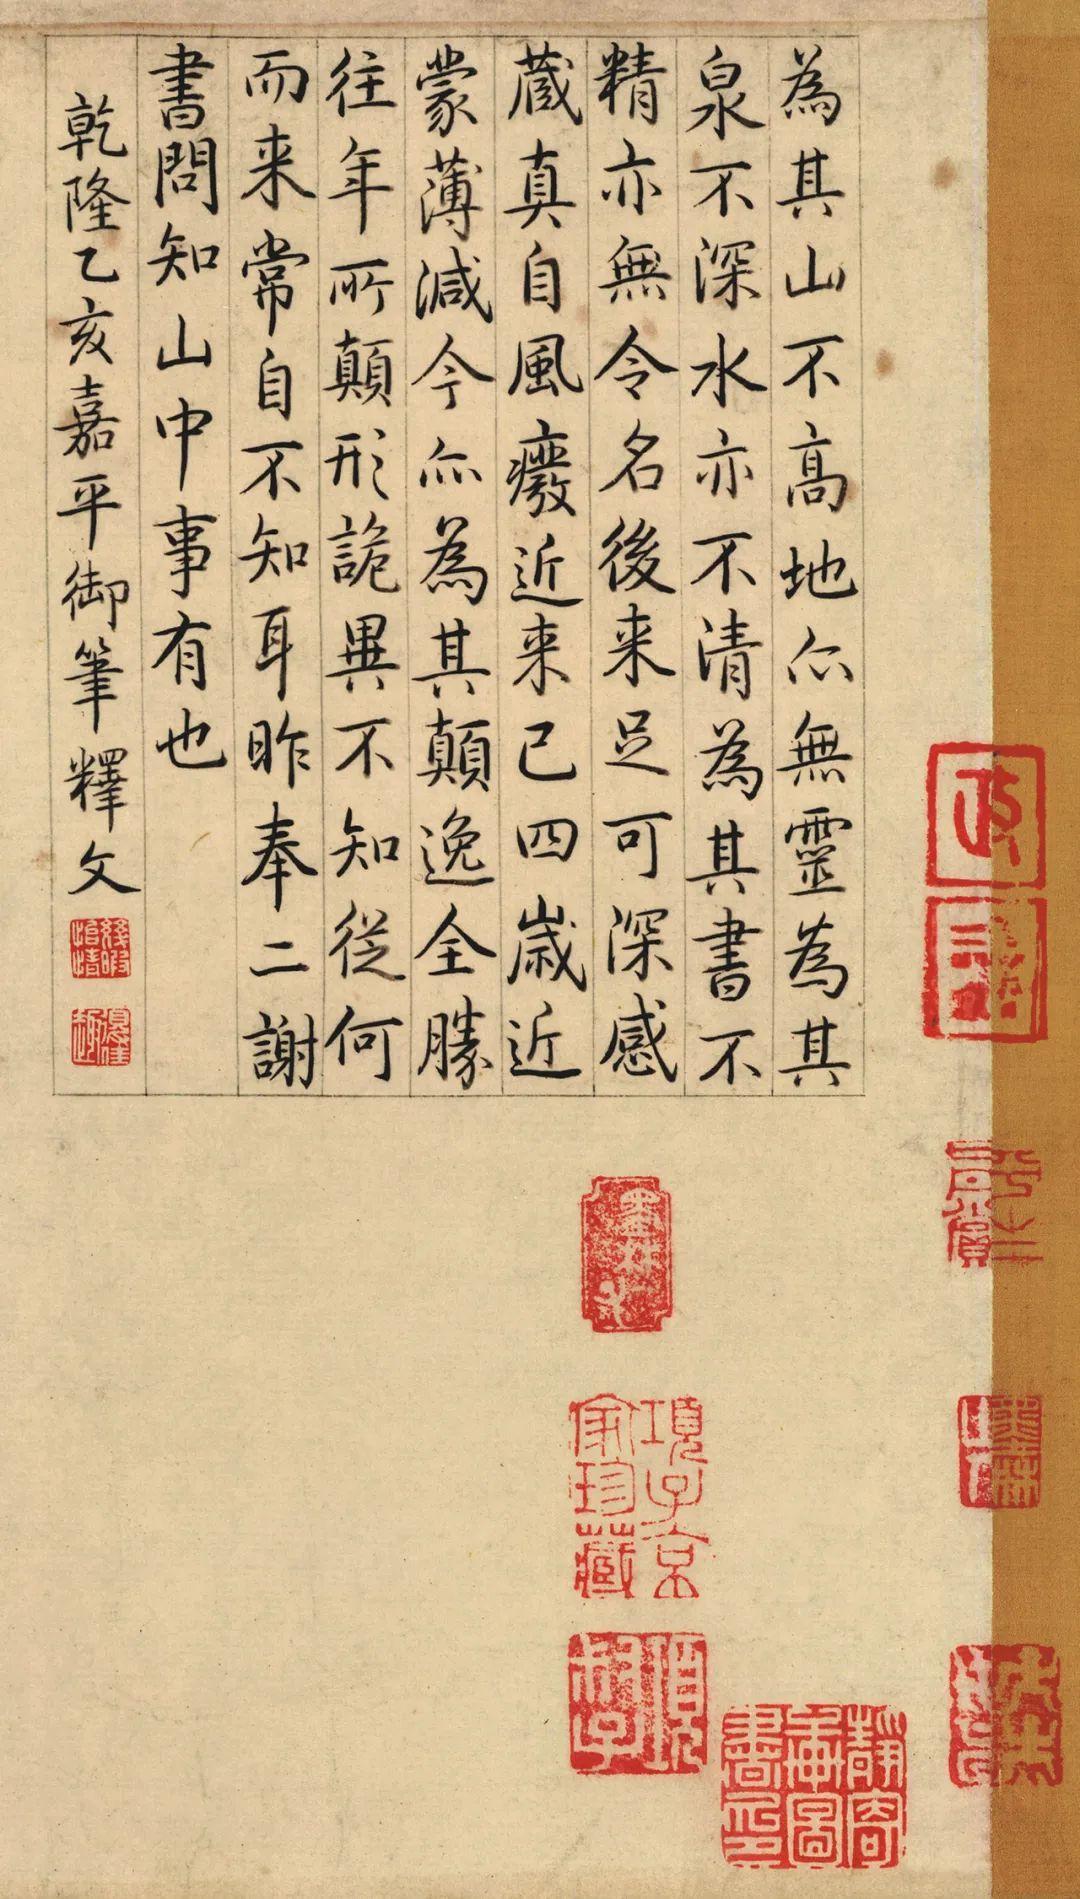 為其山不高地亦無靈為其
泉不深水亦不清為其書不
精亦無令名後来足可深感
蔵真自風癈近来已四歲近
蒙薄減今亦為其顛逸全勝
往年所顛形詭異不知從何
而来常自不知耳昨奉二謝
書問知山中事有也
乾隆乙亥嘉平御筆釋文
幾暇怡情
得佳趣
項子京家珍藏
靜寄東軒圖書之印